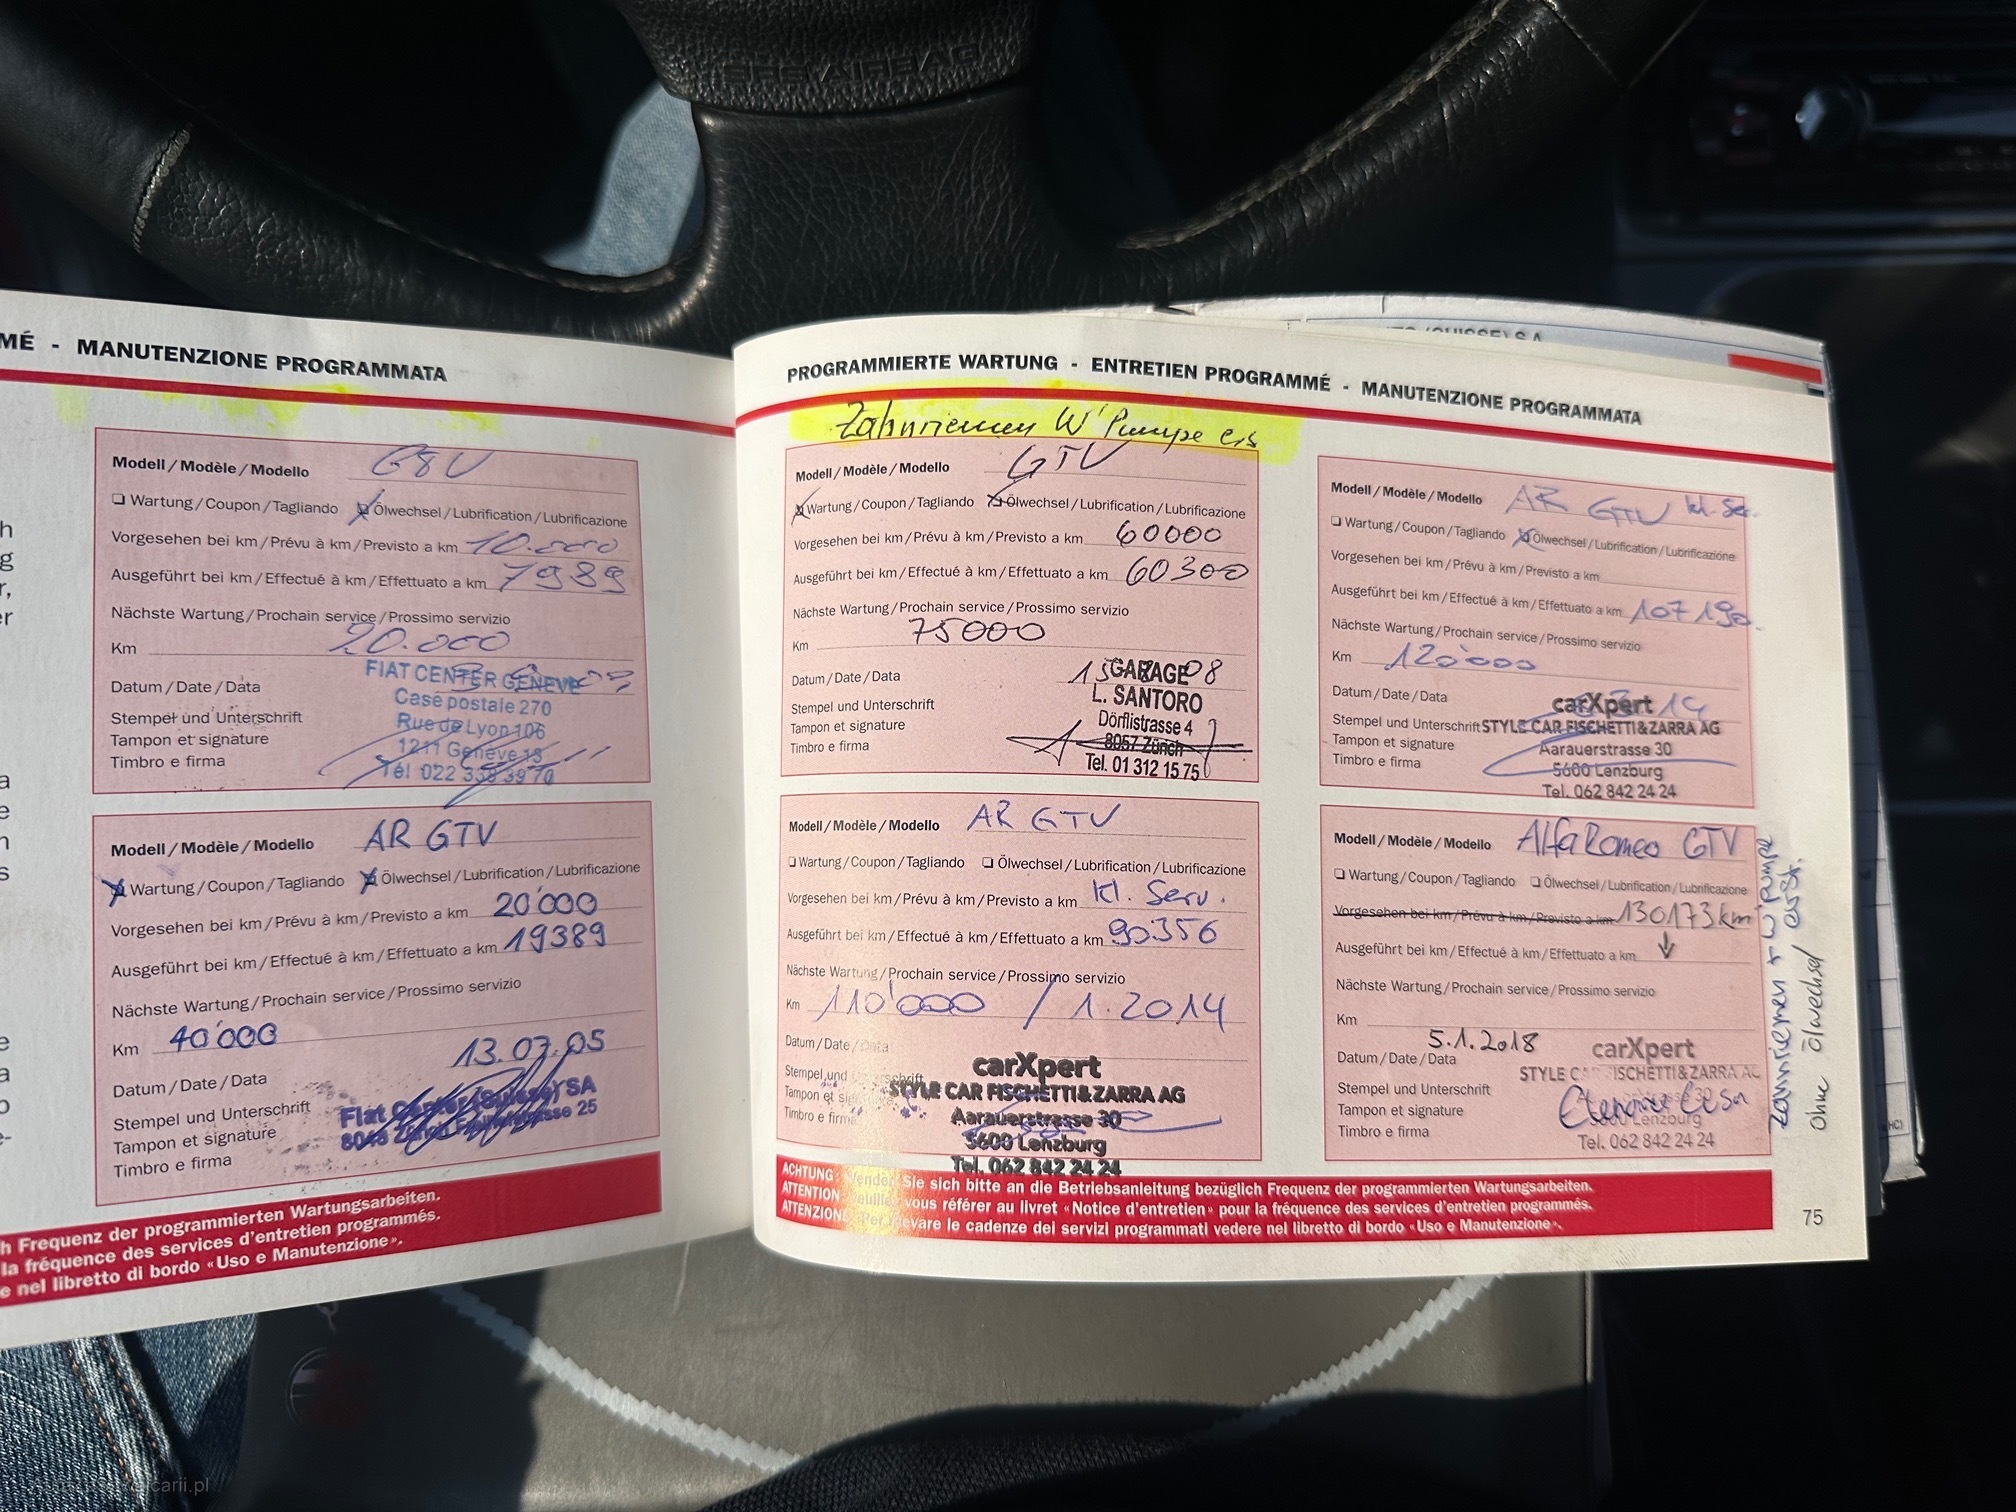 SRS AIRBAG
MÉ - MANUTENZIONE PROGRAMMATA
Modell / Modèle / Modello
❏ Wartung / Coupon / Tagliando ❏ Ölwechsel / Lubrification / Lubrificazione
Vorgesehen bei km / Prévu à km / Previsto a km 10.000
Ausgeführt bei km / Effectué à km / Effettuato a km 7989
Nächste Wartung / Prochain service / Prossimo servizio
Km 20.000
Datum / Date / Data
Stempel und Unterschrift
Tampon et signature
Timbro e firma
FIAT CENTER GENEVE
Case postale 270
Rue de Lyon 106
1211 Genève 13
Tél 022 338 39 70
Modell / Modèle / Modello AR GTV
❏ Wartung / Coupon / Tagliando ❏ Ölwechsel / Lubrification / Lubrificazione
Vorgesehen bei km / Prévu à km / Previsto a km 20'000
Ausgeführt bei km / Effectué à km / Effettuato a km 19389
Nächste Wartung / Prochain service / Prossimo servizio
Km 40'000
Datum / Date / Data 13.07.05
Stempel und Unterschrift
Tampon et signature
Timbro e firma
Fiat Center (Suisse) SA
8048 Zürich 25
h Frequenz der programmierten Wartungsarbeiten.
la fréquence des services d'entretien programmés.
e nel libretto di bordo «Uso e Manutenzione».
PROGRAMMIERTE WARTUNG - ENTRETIEN PROGRAMMÉ - MANUTENZIONE PROGRAMMATA
Zahnriemen W'Pumpe
Modell / Modèle / Modello GTV
❏ Wartung / Coupon / Tagliando ❏ Ölwechsel / Lubrification / Lubrificazione
Vorgesehen bei km / Prévu à km / Previsto a km 60000
Ausgeführt bei km / Effectué à km / Effettuato a km 60300
Nächste Wartung / Prochain service / Prossimo servizio
Km 75000
Datum / Date / Data
Stempel und Unterschrift
Tampon et signature
Timbro e firma
GARAGE
L. SANTORO
Dörflistrasse 4
8057 Zürich
Tel. 01 312 15 75
Modell / Modèle / Modello AR GTV
❏ Wartung / Coupon / Tagliando ❏ Ölwechsel / Lubrification / Lubrificazione
Vorgesehen bei km / Prévu à km / Previsto a km kl. Serv.
Ausgeführt bei km / Effectué à km / Effettuato a km 90356
Nächste Wartung / Prochain service / Prossimo servizio
Km 110'000 / 1.2014
Datum / Date / Data
Stempel und Unterschrift
Tampon et signature
Timbro e firma
carXpert
STYLE CAR FISCHETTI & ZARRA AG
Aarauerstrasse 30
5600 Lenzburg
Tel. 062 842 24 24
Modell / Modèle / Modello AR GTV kl. Ser.
❏ Wartung / Coupon / Tagliando ❏ Ölwechsel / Lubrification / Lubrificazione
Vorgesehen bei km / Prévu à km / Previsto a km
Ausgeführt bei km / Effectué à km / Effettuato a km 107190.
Nächste Wartung / Prochain service / Prossimo servizio
Km 120'000
Datum / Date / Data
Stempel und Unterschrift
Tampon et signature
Timbro e firma
carXpert
STYLE CAR FISCHETTI & ZARRA AG
Aarauerstrasse 30
5600 Lenzburg
Tel. 062 842 24 24
Modell / Modèle / Modello Alfa Romeo GTV
❏ Wartung / Coupon / Tagliando ❏ Ölwechsel / Lubrification / Lubrificazione
Vorgesehen bei km / Prévu à km / Previsto a km 130173 km
Ausgeführt bei km / Effectué à km / Effettuato a km
Nächste Wartung / Prochain service / Prossimo servizio
Km
Datum / Date / Data 5.1.2018
Stempel und Unterschrift
Tampon et signature
Timbro e firma
carXpert
STYLE CAR FISCHETTI & ZARRA AG
5600 Lenzburg
Tel. 062 842 24 24
Zahnriemen + W'Pumpe
ohne Ölwechsel
ACHTUNG: Wenden Sie sich bitte an die Betriebsanleitung bezüglich Frequenz der programmierten Wartungsarbeiten.
ATTENTION: Veuillez vous référer au livret «Notice d'entretien» pour la fréquence des services d'entretien programmés.
ATTENZIONE: Per rilevare le cadenze dei servizi programmati vedere nel libretto di bordo «Uso e Manutenzione».
75